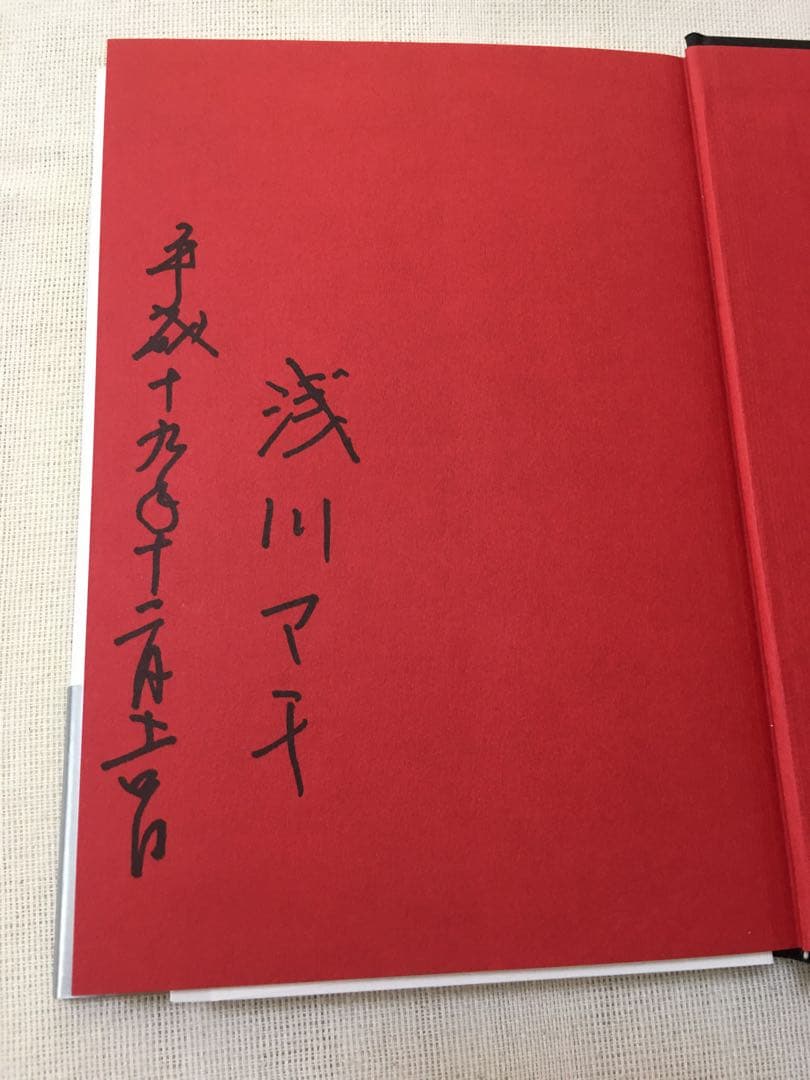 浅川マキ
平成十九年十二月吉日